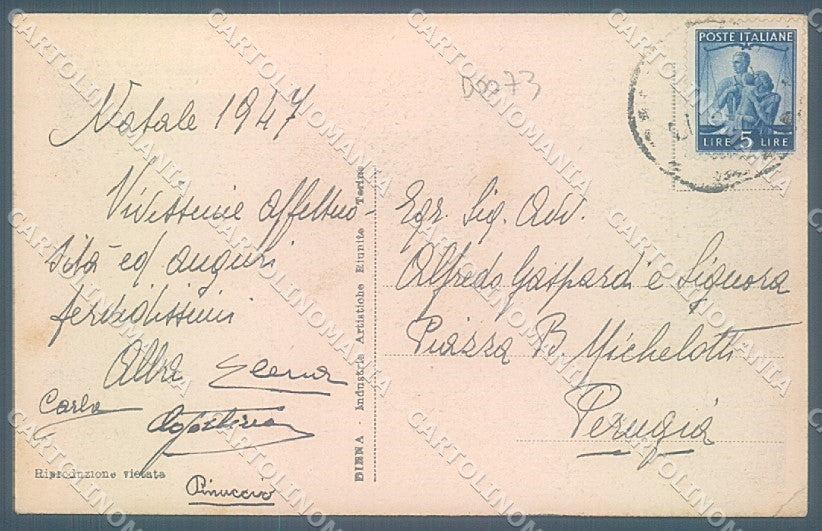 Natale 1947
Vivissime affettuo-
sità ed auguri
fervidissimi
Alba Elena
Carla
Agostino
Pinuccio
Riproduzione vietata
DIENA - Industrie Artistiche Riunite Torino
D5073
POSTE ITALIANE
LIRE 5 LIRE
Egr. Sig. Avv.
Alfredo Gaspardi e Signora
Piazza B. Michelotti
Perugia
CARTOLINOMANIA